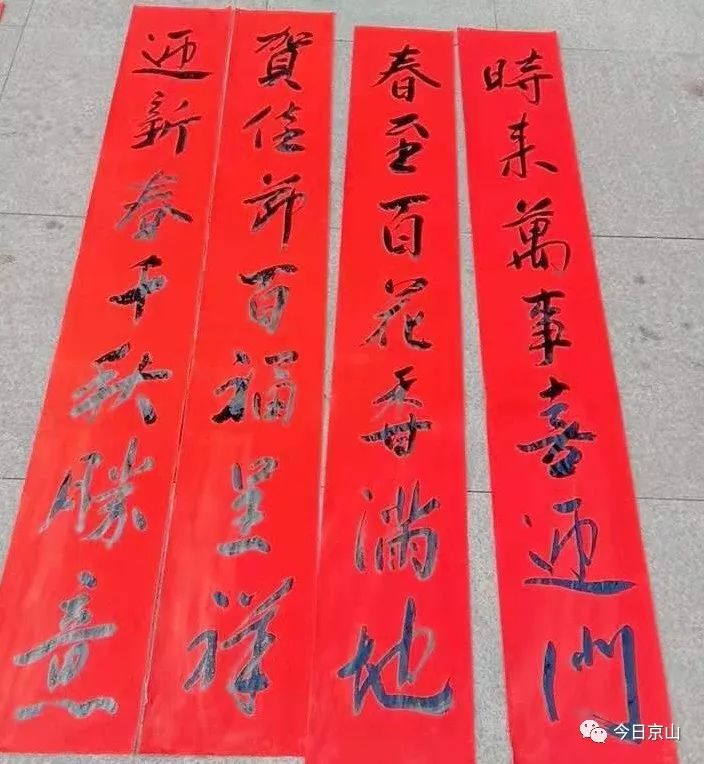 迎新春千秋勝意
賀佳節百福呈祥
春至百花香滿地
時来萬事喜迎門
今日京山